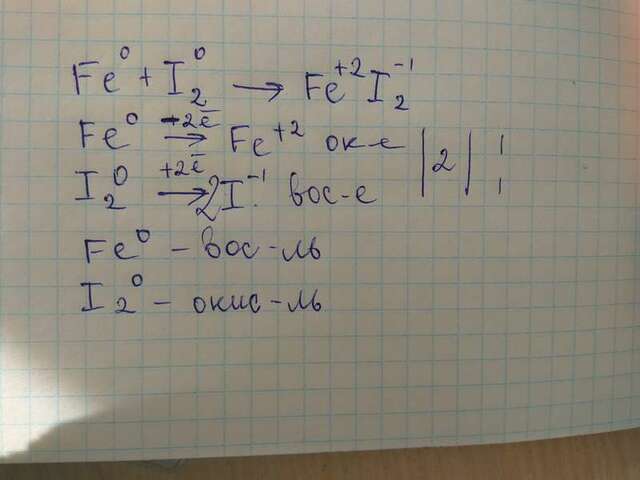 Fe⁰ + I₂⁰ → Fe⁺²I₂⁻¹
Fe⁰ -2ē → Fe⁺² ок-е | 2 | 1
I₂⁰ +2ē → 2I⁻¹ вос-е | | 1
Fe⁰ – вос-ль
I₂⁰ – окис-ль